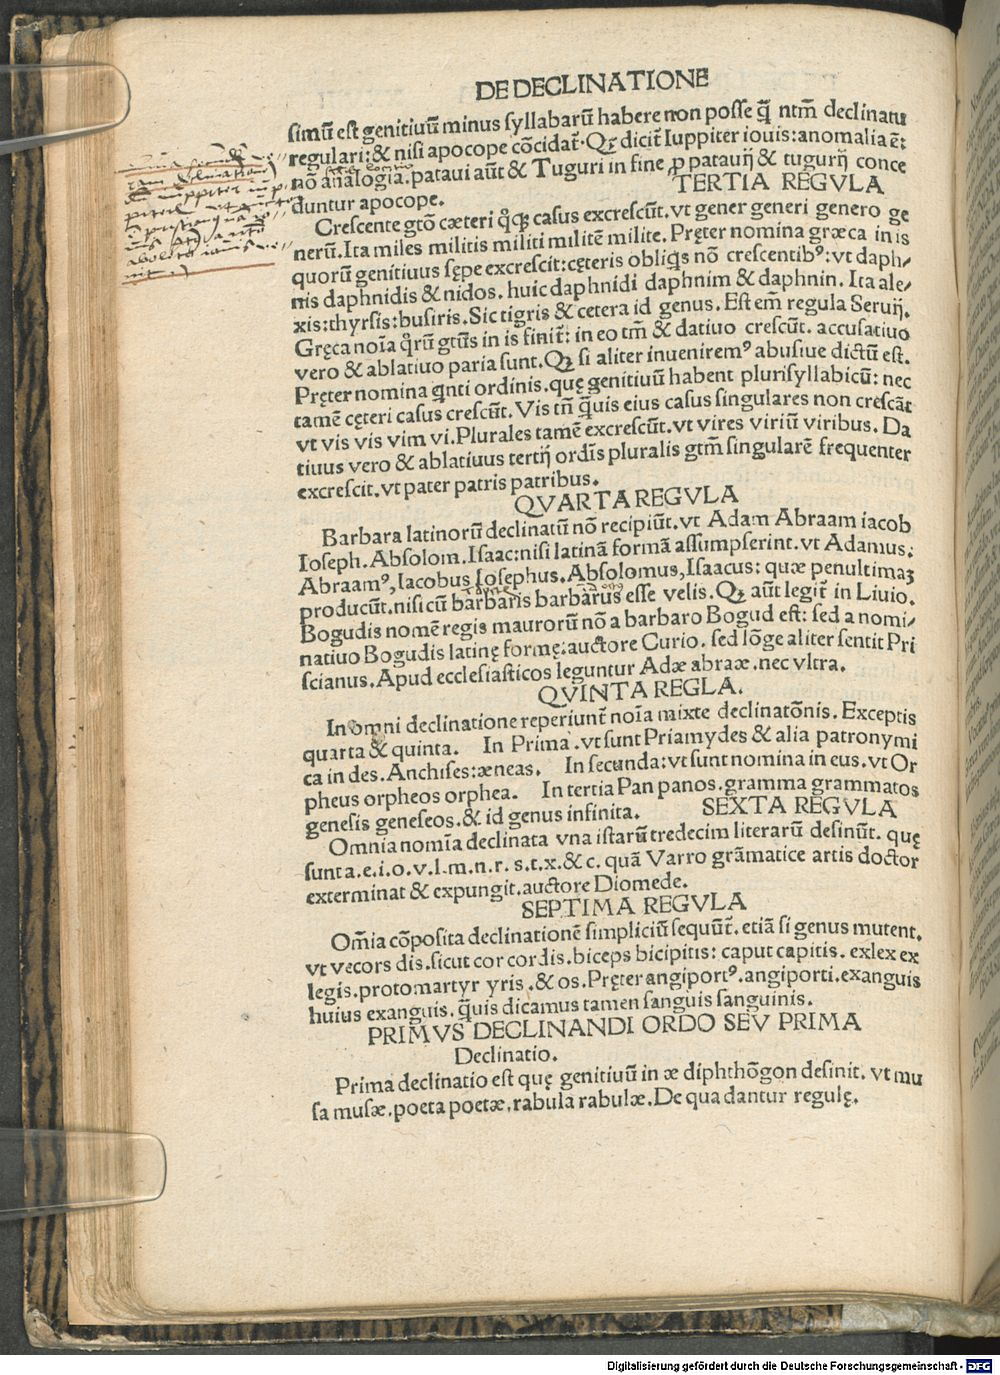 DE DECLINATIONE
simū est genitiuū minus syllabarū habere non posse q̄ ntm̄ declinatu
regulari: & nisi apocope cōcidat̄. Qꝫ dicit̄ Iuppiter iouis: anomalia ē:
nō analogia. pataui aūt & Tuguri in fine ꝓ patauij & tugurij conce
duntur apocope.
TERTIA REGVLA
Crescente gtō cæteri qͥqꝫ casus excrescūt. vt gener generi genero ge
nerū. Ita miles militis militi militē milite. Pręter nomina græca in is
quorū genitiuus sępe excrescit: cęteris obliqͥs nō crescentibꝰ: vt daph/
nis daphnidis & nidos. huic daphnidi daphnim & daphnin. Ita ale/
xis: thyrsis: busiris. Sic tigris & cetera id genus. Est em̄ regula Seruij.
Gręca noīa qͦrū gtūs in is finit̄: in eo tm̄ & datiuo crescūt. accusatiuo
vero & ablatiuo paria sunt. Qꝫ si aliter inueniremꝰ abusiue dictū est.
Pręter nomina qͥnti ordinis. quę genitiuū habent plurisyllabicū: nec
tamē cęteri casus crescūt. Vis tn̄ qͣuis eius casus singulares non crescāt
vt vis vis vim vi. Plurales tamē excrescūt. vt vires viriū viribus. Da
tiuus vero & ablatiuus tertij ordīs pluralis gtm̄ singularē frequenter
excrescit. vt pater patris patribus.
QVARTA REGVLA
Barbara latinorū declinatū nō recipiūt. vt Adam Abraam iacob
Ioseph. Absolom. Isaac: nisi latinā formā assumpserint. vt Adamus.
Abraamꝰ, Iacobus Iosephus. Absolomus, Isaacus: quæ penultimaꝫ
producūt. nisi cū barbaris barbarus esse velis. Qꝫ aūt legit̄ in Liuio.
Bogudis nomē regis maurorū nō a barbaro Bogud est: sed a nomi/
natiuo Bogudis latinę formę: auctore Curio. sed lōge aliter sentit Pri
scianus. Apud ecclesiasticos leguntur Adæ abraæ. nec vltra.
QVINTA REGLA.
In omni declinatione reperiunt̄ noīa mixte declinatōnis. Exceptis
quarta & quinta. In Prima. vt sunt Priamydes & alia patronymi
ca in des. Anchises: æneas. In secunda: vt sunt nomina in eus. vt Or
pheus orpheos orphea. In tertia Pan panos. gramma grammatos
genesis geneseos. & id genus infinita.
SEXTA REGVLA
Omnia nomīa declinata vna istarū tredecim literarū desinūt. quę
sunt a. e. i. o. v. l. m. n. r. s. t. x. & c. quā Varro grāmatice artis doctor
exterminat & expungit. auctore Diomede.
SEPTIMA REGVLA
Om̄ia cōposita declinationē simpliciū sequūt̄. etiā si genus mutent.
vt vecors dis. sicut cor cordis. biceps bicipitis: caput capitis. exlex ex
legis. protomartyr yris. & os. Pręter angiportꝰ. angiporti. exanguis
huius exanguis. qͣuis dicamus tamen sanguis sanguinis.
PRIMVS DECLINANDI ORDO SEV PRIMA
Declinatio.
Prima declinatio est quę genitiuū in æ diphthōgon desinit. vt mu
sa musæ. poeta poetæ, rabula rabulæ. De qua dantur regulę.
Digitalisierung gefördert durch die Deutsche Forschungsgemeinschaft - DFG